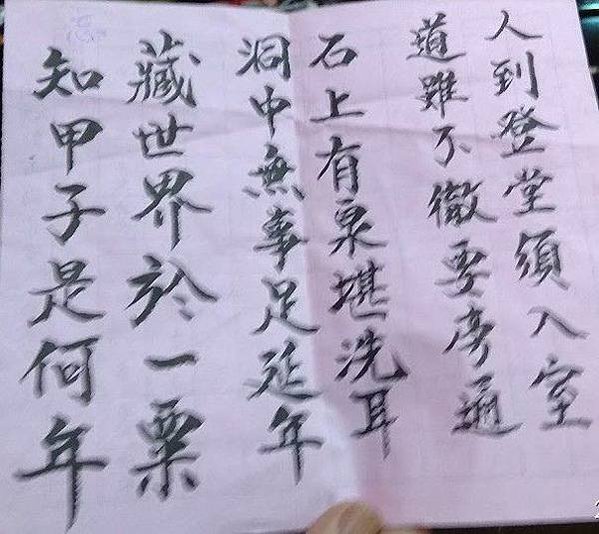 人到登堂須入室
道雖不徹要旁通
石上有泉堪洗耳
洞中無事足延年
藏世界於一粟
知甲子是何年